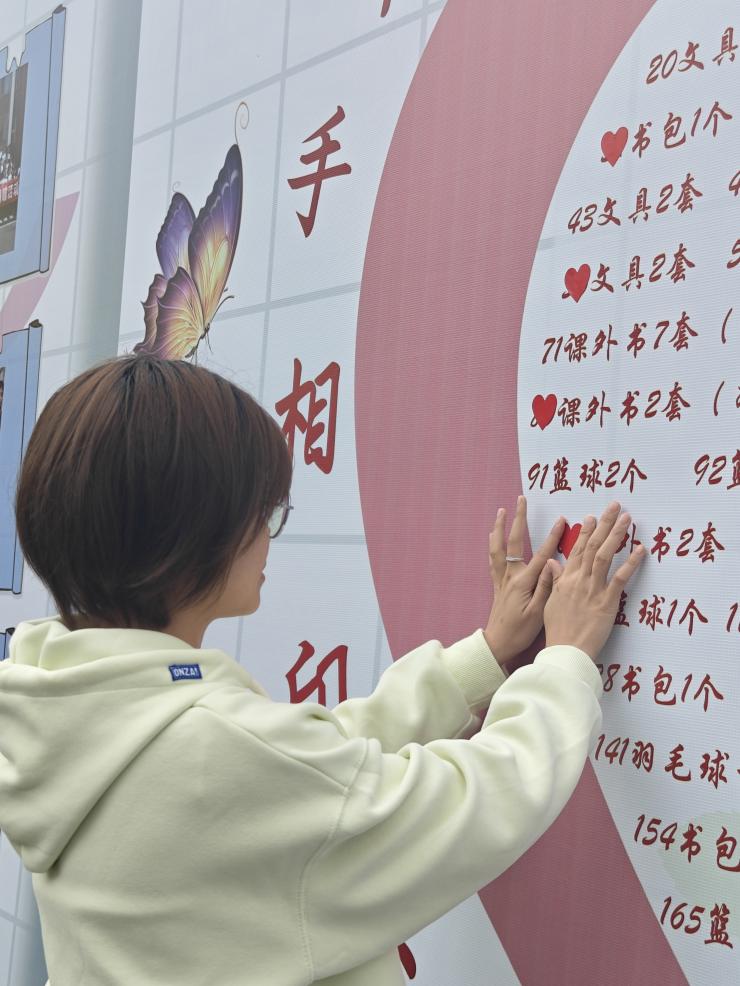 手
相
印
20文具
书包1个
43文具2套
文具2套
71课外书7套（
课外书2套（
91篮球2个 92篮
外书2套
篮球1个
8书包1个
141羽毛球
154书包
165篮
ONZA!